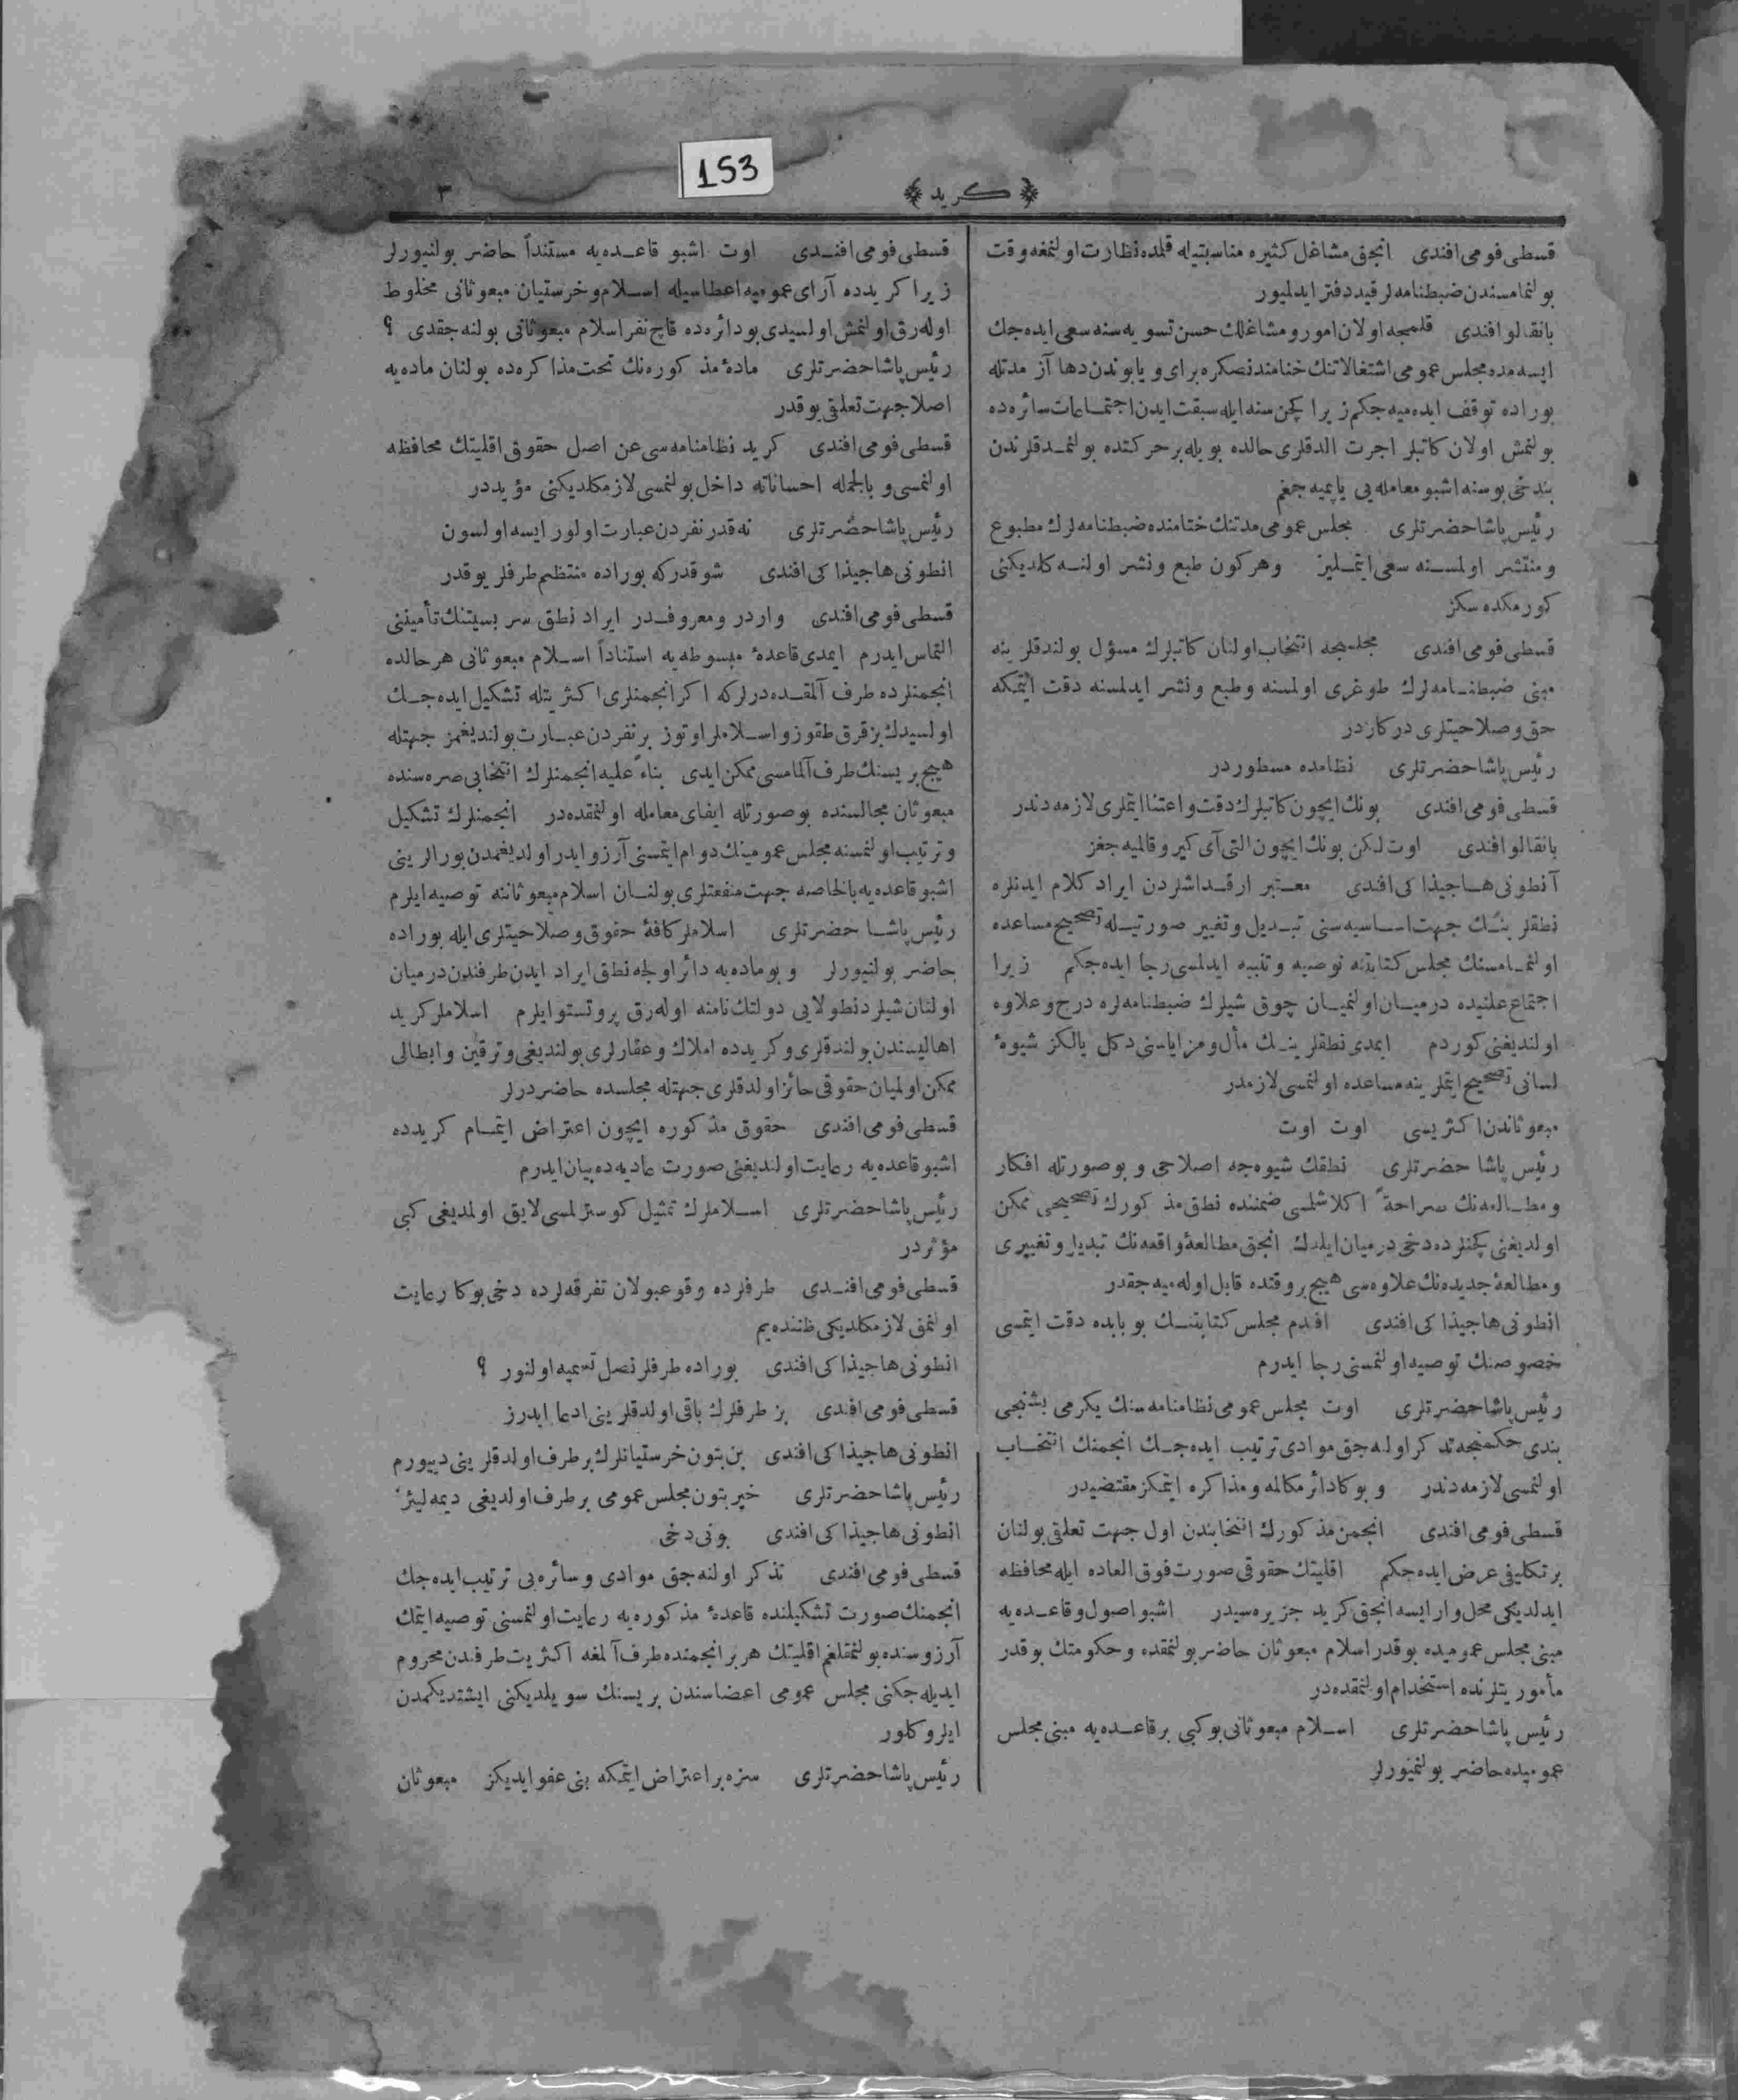 153
﴿ كريد ﴾
٣
قسطی فومی افندی انجق مشاغل كثیره مناسبتیله قلمده نظارت اولنمغه وقت
بولنمامسندن ضبطنامه لر قید دفتر ایدلمیور
بانقالو افندی قلمجه اولان امور و مشاغلك حسن تسویه سنه سعی ایده جك
ایسه مده مجلس عمومی اشتغالاتنك ختامندنصكره برای و یا بوندن دها آز مدتله
بوراده توقف ایده میه جكم زیرا كچن سنه ایله سبقت ایدن اجتماعات سائره ده
بولنمش اولان كاتبلر اجرت الدقلری حالده بویله بر حركتده بولنمدقلرندن
بندخی بوسنه اشبو معامله یی یاپمیه جغم
رئیس پاشا حضرتلری مجلس عمومی مدتنك ختامنده ضبطنامه لرك مطبوع
و منتشر اولمسنه سعی ایتملیز و هركون طبع و نشر اولنه كلدیكنی
كورمكده سكز
قسطی فومی افندی مجلسجه انتخاب اولنان كاتبلرك مسؤل بولندقلرینه
مبنی ضبطنامه لرك طوغری اولمسنه و طبع و نشر ایدلمسنه دقت ایتمكه
حق و صلاحیتلری دركاردر
رئیس پاشا حضرتلری نظامده مسطوردر
قسطی فومی افندی بونك ایچون كاتبلرك دقت و اعتنا ایتملری لازمه دندر
بانقالو افندی اوت لكن بونك ایچون التی آی كیرو قالمیه جغز
آنطونی هاجیذا كی افندی معتبر ارقداشلردن ایراد كلام ایدنلره
نطقلرینك جهت اساسیه سنی تبدیل و تغییر صورتیله تصحیح مساعده
اولنمامسنك مجلس كتابتنه توصیه و تنبیه ایدلمسی رجا ایده جكم زیرا
اجتماع علنیده درمیان اولنمیان چوق شیلرك ضبطنامه لره درج و علاوه
اولندیغنی كوردم ایمدی نطقلرینك مأل و مزایاسنی دكل یالكز شیوهٔ
لسانی تصحیح ایتملرینه مساعده اولنمسی لازمدر
مبعوثاندن اكثریسی اوت اوت
رئیس پاشا حضرتلری نطقك شیوه جه اصلاحی و بو صورتله افكار
و مطالعه نك صراحةً اكلاشلمسی ضمننده نطق مذكورك تصحیحی ممكن
اولدیغنی كچنلرده دخی درمیان ایلدك انجق مطالعهٔ واقعه نك تبدیل و تغییری
و مطالعهٔ جدیده نك علاوه سی هیچ بر وقتده قابل اوله میه جقدر
انطونی هاجیذا كی افندی افندم مجلس كتابتنك بو بابده دقت ایتمسی
خصوصنك توصیه اولنمسنی رجا ایدرم
رئیس پاشا حضرتلری اوت مجلس عمومی نظامنامه سنك یكرمی بشنجی
بندی حكمنجه تذكر اولنه جق موادی ترتیب ایده جك انجمنك انتخاب
اولنمسی لازمه دندر و بوكا دائر مكالمه و مذاكره ایتمكز مقتضیدر
قسطی فومی افندی انجمن مذكورك انتخابندن اول جهت تعلقی بولنان
بر تكلیفی عرض ایده جكم اقلیتك حقوقی صورت فوق العاده ایله محافظه
ایدلدیكی محل وار ایسه انجق كرید جزیره سیدر اشبو اصول و قاعده یه
مبنی مجلس عمومیده بوقدر اسلام مبعوثان حاضر بولنمقده و حكومتك بوقدر
مأموریتلرنده استخدام اولنمقده در
رئیس پاشا حضرتلری اسلام مبعوثانی بو كبی بر قاعده یه مبنی مجلس
عمومیده حاضر بولنمیورلر
قسطی فومی افندی اوت اشبو قاعده یه مستنداً حاضر بولنیورلر
زیرا كریدده آرای عمومیه اعطاسیله اسلام و خرستیان مبعوثانی مخلوط
اوله رق اولنمش اولسیدی بو دائره ده قاچ نفر اسلام مبعوثانی بولنه جقدی ؟
رئیس پاشا حضرتلری مادهٔ مذكوره نك تحت مذاكره ده بولنان ماده یه
اصلا جهت تعلقی یوقدر
قسطی فومی افندی كرید نظامنامه سی عن اصل حقوق اقلیتك محافظه
اولنمسی و بالجمله احساناته داخل بولنمسی لازمكلدیكنی مؤیددر
رئیس پاشا حضرتلری نه قدر نفردن عبارت اولور ایسه اولسون
انطونی هاجیذا كی افندی شو قدر كه بوراده منتظم طرفلر یوقدر
قسطی فومی افندی واردر و معروفدر ایراد نطق سربسیتنك تأمیننی
التماس ایدرم ایمدی قاعدهٔ مبسوطه یه استناداً اسلام مبعوثانی هر حالده
انجمنلرده طرف آلمقده درلر كه اكر انجمنلری اكثریتله تشكیل ایده جك
اولسیدك بز قرق طقوز و اسلاملر اوتوز بر نفردن عبارت بولندیغمز جهتله
هیچ بریسنك طرف آلمامسی ممكن ایدی بناءً علیه انجمنلرك انتخابی صره سنده
مبعوثان مجالسنده بو صورتله ایفای معامله اولنمقده در انجمنلرك تشكیل
و ترتیب اولنمسنه مجلس عمومینك دوام ایتمسنی آرزو ایدر اولدیغمدن بورالرینی
اشبو قاعده یه بالخاصه جهت منفعتلری بولنان اسلام مبعوثاننه توصیه ایلرم
رئیس پاشا حضرتلری اسلاملر كافهٔ حقوق و صلاحیتلری ایله بوراده
حاضر بولنیورلر و بو ماده یه دائر اولجه نطق ایراد ایدن طرفندن درمیان
اولنان شیلردنطولایی دولتك نامنه اوله رق پروتستو ایلرم اسلاملر كرید
اهالیسندن بولندقلری و كریدده املاك و عقارلری بولندیغی و ترقین و ابطالی
ممكن اولمیان حقوقی حائز اولدقلری جهتله مجلسده حاضردرلر
قسطی فومی افندی حقوق مذكوره ایچون اعتراض ایتمام كریدده
اشبو قاعده یه رعایت اولندیغنی صورت عادیه ده بیان ایدرم
رئیس پاشا حضرتلری اسلاملرك تمثیل كوسترلمسی لایق اولمدیغی كبی
مؤثردر
قسطی فومی افندی طرفلرده وقوعبولان تفرقه لرده دخی بوكا رعایت
اولنمق لازمكلدیكی ظننده یم
انطونی هاجیذا كی افندی بوراده طرفلر نصل تسمیه اولنور ؟
قسطی فومی افندی بز طرفلرك باقی اولدقلرینی ادعا ایدرز
انطونی هاجیذا كی افندی بن بتون خرستیانلرك بر طرف اولدقلرینی دیيورم
رئیس پاشا حضرتلری خیر بتون مجلس عمومی بر طرف اولدیغی دیمه لییز
انطونی هاجیذا كی افندی بونی دخی
قسطی فومی افندی تذكر اولنه جق موادی و سائره یی ترتیب ایده جك
انجمنك صورت تشكیلنده قاعدهٔ مذكوره یه رعایت اولنمسنی توصیه ایتمك
آرزوسنده بولنمقلغم اقلیتك هر بر انجمنده طرف آلمغه اكثریت طرفندن محروم
ایدیله جكنی مجلس عمومی اعضاسندن بریسنك سویلدیكنی ایشتدیكمدن
ایلرو كلور
رئیس پاشا حضرتلری سزه بر اعتراض ایتمكه بنی عفو ایدیكز مبعوثان